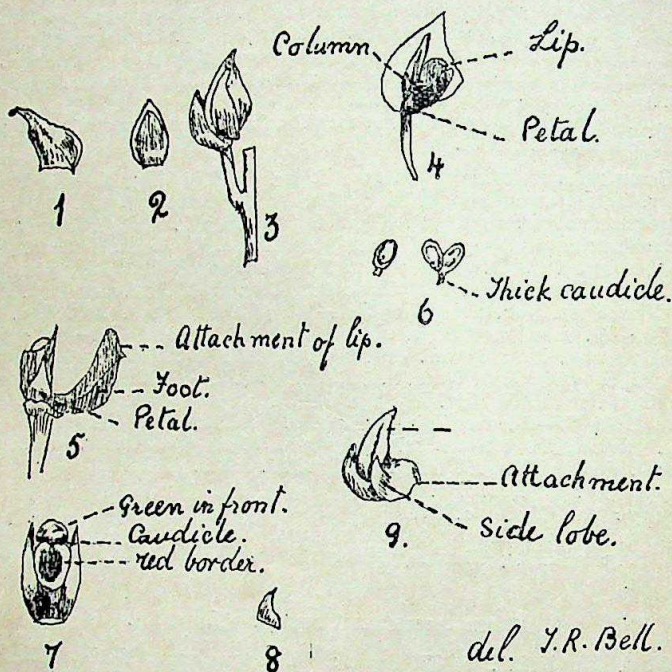 Column
Lip.
Petal.
1
2
3
4
Thick caudicle.
6
Attachment of lip.
Foot.
Petal.
5
Attachment.
Side lobe.
9.
Green in front.
Caudicle.
red border.
7
8
del. T.R. Bell.